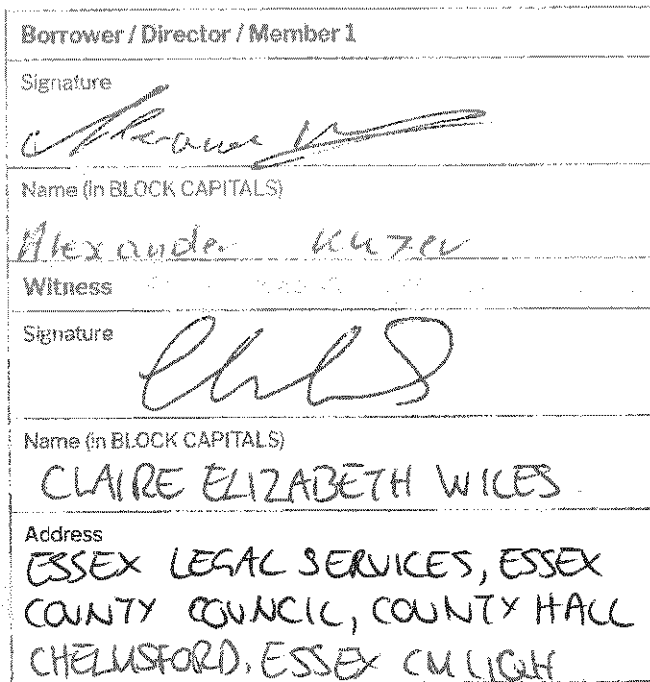 Borrower / Director / Member 1
Signature
Name (in BLOCK CAPITALS)
Alexander
Witness
Signature
Name (in BLOCK CAPITALS)
CLAIRE ELIZABETH WILES
Address
ESSEX LEGAL SERVICES, ESSEX
COUNTY COUNCIL, COUNTY HALL
CHELMSFORD, ESSEX